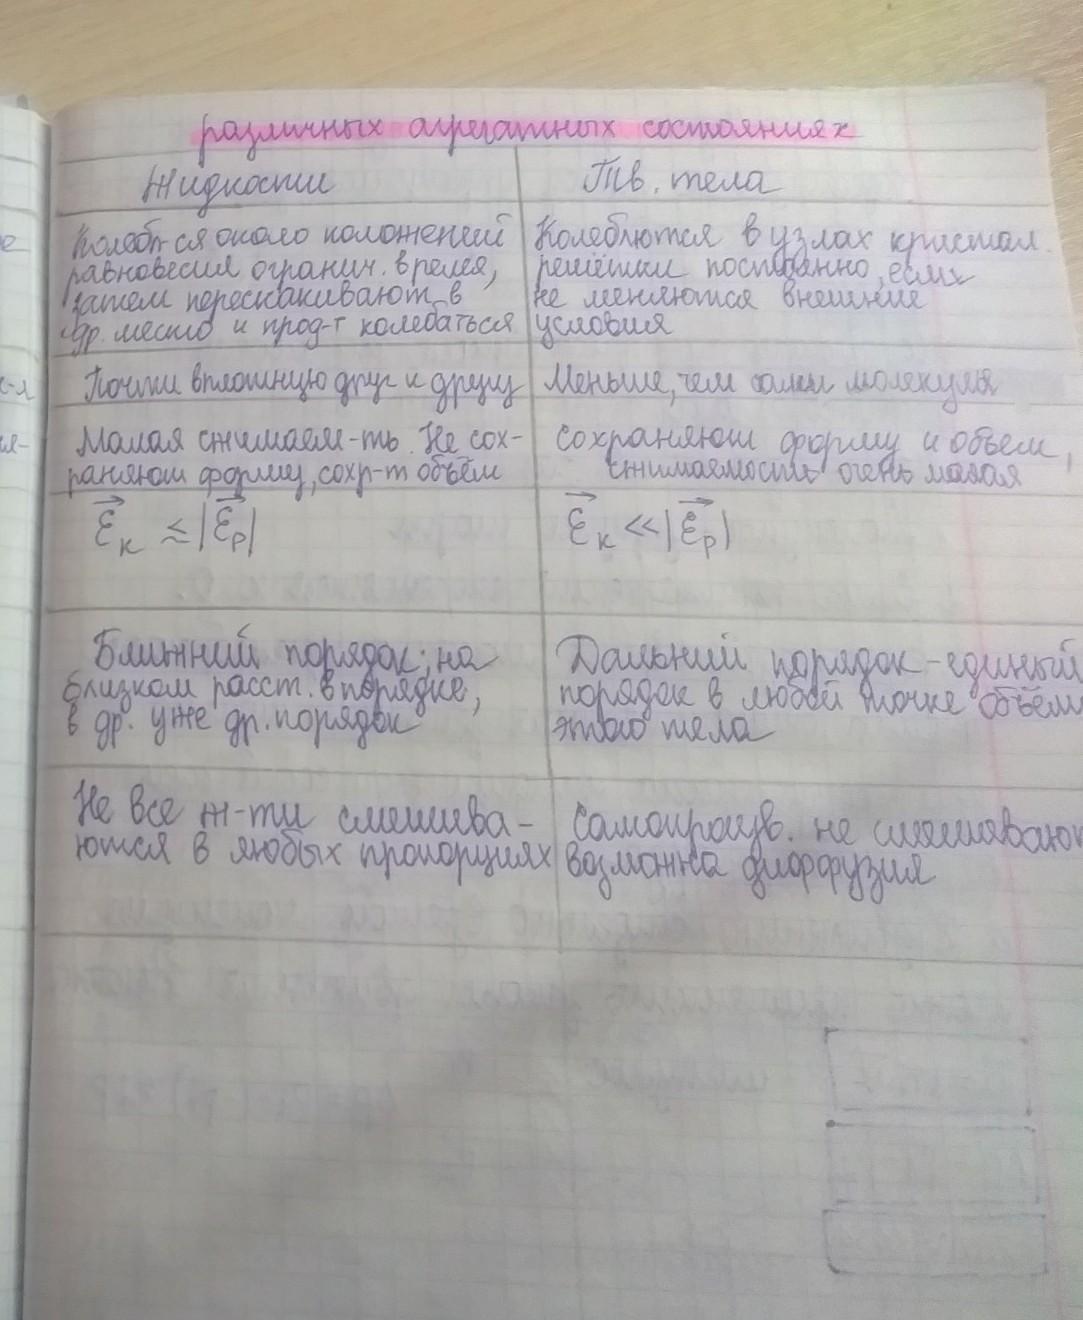 различных агрегатных состояниях
Жидкости
Тв. тела
Колебл-ся около положений
равновесия огранич. время,
затем перескакивают в
др. место и прод-т колебаться
Колеблются в узлах кристал.
решётки постоянно, если
не меняются внешние
условия
Почти вплотную друг к другу
Меньше, чем сами молекулы
Малая сжимаем-ть. Не сох-
раняют форму, сохр-т объём
Сохраняют форму и объем,
сжимаемость очень малая
ε⃗к ≲ |ε⃗р|
ε⃗к << |ε⃗р|
Ближний порядок; на
близком расст. в порядке,
в др. уже др. порядок
Дальний порядок - единый
порядок в любой точке объём
этого тела
Не все ж-ти смешива-
ются в любых пропорциях
Самопроизв. не смешивают
возможна диффузия